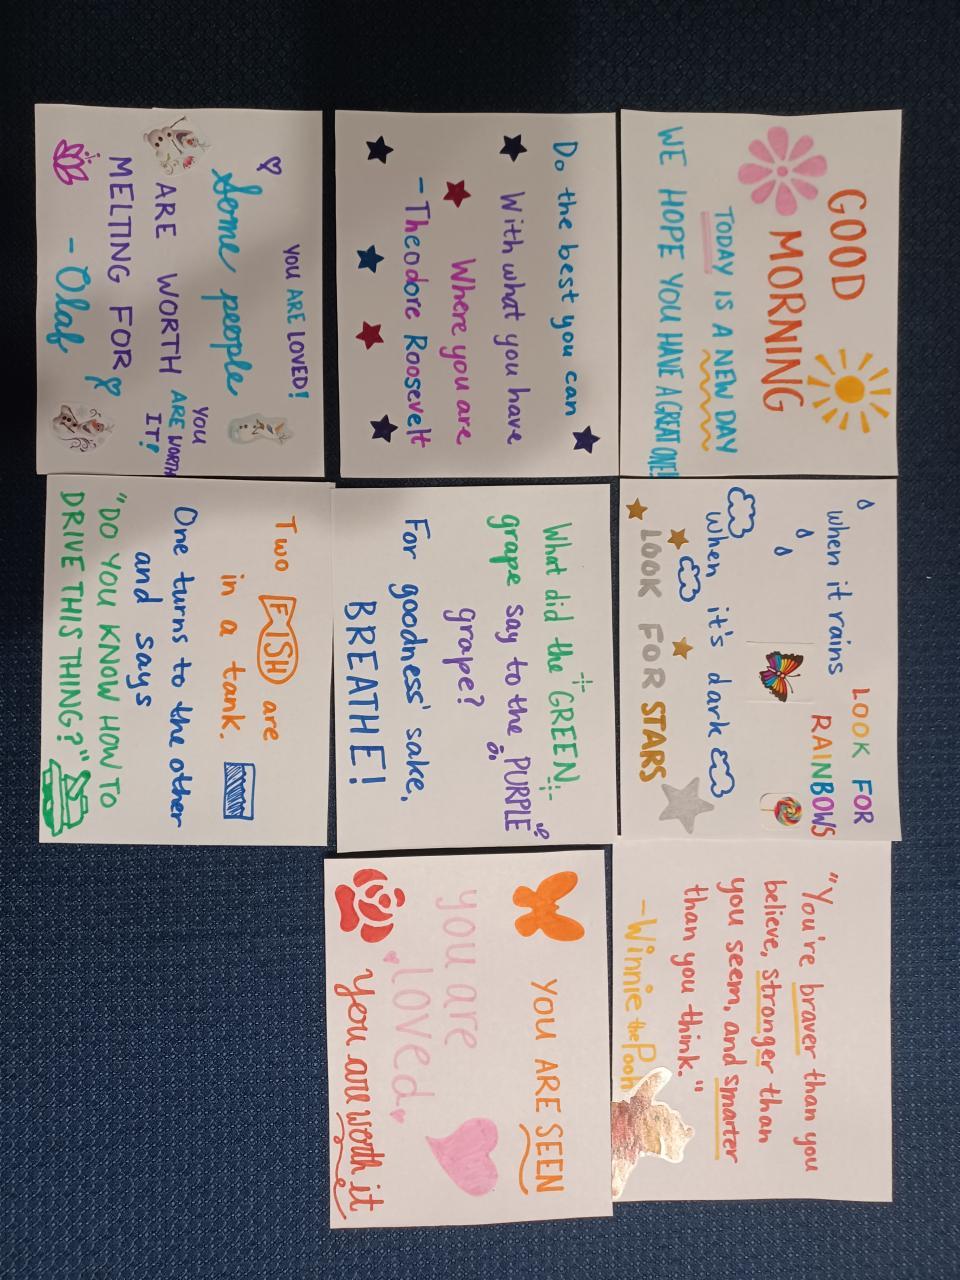 GOOD
MORNING
TODAY IS A NEW DAY
WE HOPE YOU HAVE A GREAT ONE!
when it rains
LOOK FOR
RAINBOWS
When it's dark
LOOK FOR STARS
"You're braver than you
believe, stronger than
you seem, and smarter
than you think."
-Winnie the Pooh
Do the best you can
With what you have
Where you are
-Theodore Roosevelt
What did the GREEN
grape say to the PURPLE
grape?
For goodness' sake,
BREATHE!
YOU ARE SEEN
you are
loved
you are worth it
YOU ARE LOVED!
Some people
ARE WORTH
MELTING FOR
- Olaf
YOU
ARE WORTH
IT!
Two FISH are
in a tank.
One turns to the other
and says
"DO YOU KNOW HOW TO
DRIVE THIS THING?"